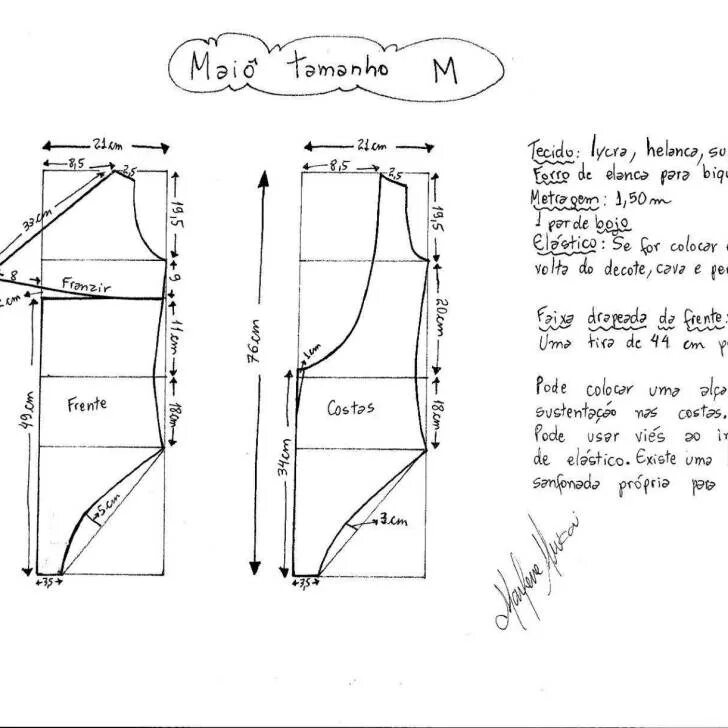 Maiô tamanho M
21 cm
8,5
2,5
33 cm
19,5
8
Franzir
9
2 cm
11 cm
49 cm
Frente
18 cm
5 cm
3,5
21 cm
8,5
2,5
19,5
76 cm
20 cm
1 cm
Costas
18 cm
34 cm
3 cm
3,5
Tecido: lycra, helanca, su
Forro de elanca para biqu
Metragem: 1,50 m
1 par de bojo
Elástico: Se for colocar
volta do decote, cava e pe
Faixa drapeada da frente:
Uma tira de 44 cm p
Pode colocar uma alça
sustentação nas costas.
Pode usar viés ao in
de elástico. Existe uma
sanfonada própria para
Marlene Mukai